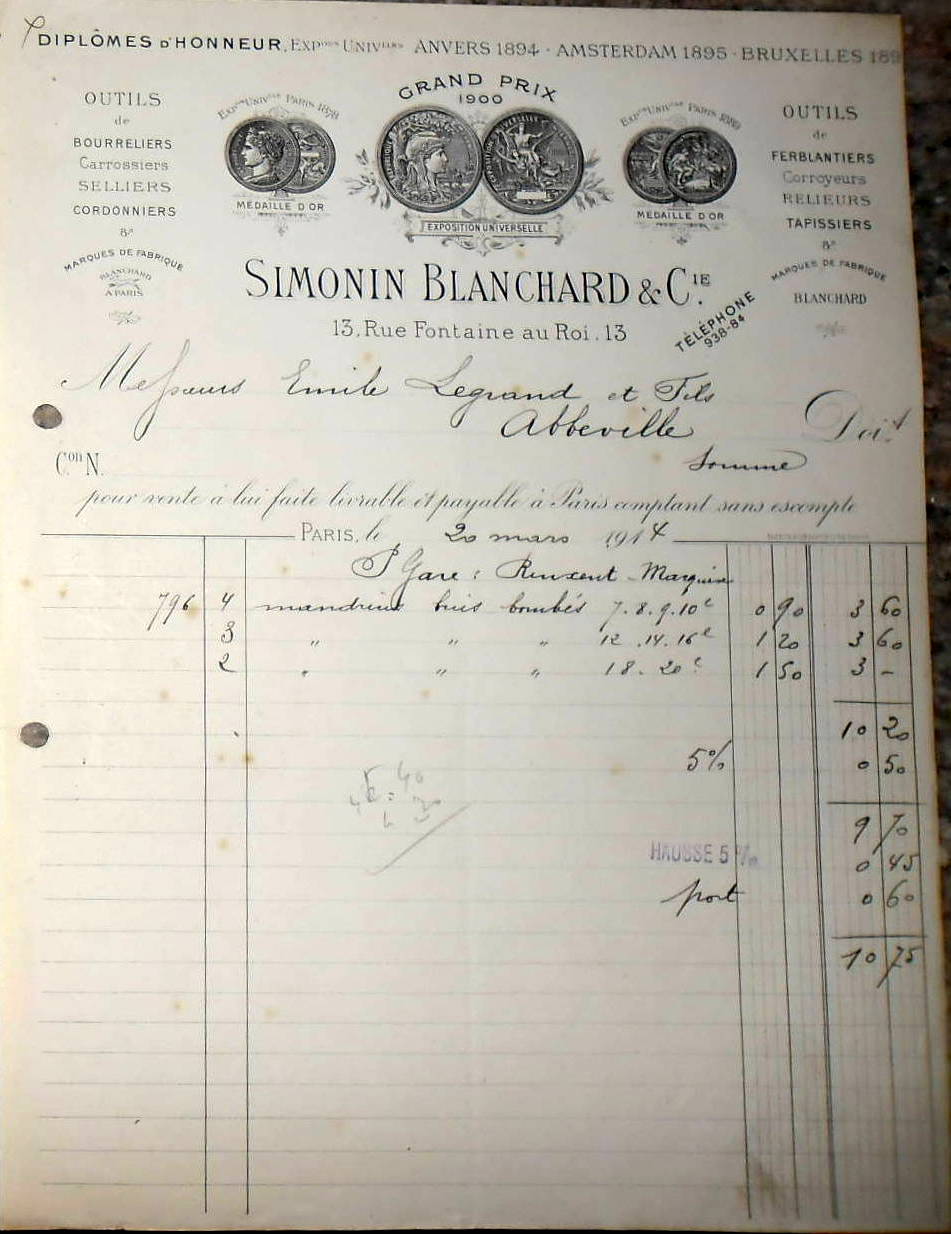 DIPLÔMES D'HONNEUR, EXPons UNIVlles ANVERS 1894 · AMSTERDAM 1895 · BRUXELLES 189
GRAND PRIX
1900
OUTILS
de
BOURRELIERS
Carrossiers
SELLIERS
CORDONNIERS
&a
MARQUES DE FABRIQUE
BLANCHARD
A PARIS
EXPon UNIVlle PARIS 1878
MÉDAILLE D'OR
EXPOSITION UNIVERSELLE
EXPon UNIVlle PARIS 1889
MÉDAILLE D'OR
OUTILS
de
FERBLANTIERS
Corroyeurs
RELIEURS
TAPISSIERS
&a
MARQUES DE FABRIQUE
BLANCHARD
SIMONIN BLANCHARD & CIE.
13, Rue Fontaine au Roi, 13
TÉLÉPHONE
938-84
Messieurs Emile Legrand et Fils
Abbeville Doit
Con N. Somme
pour vente à lui faite livrable et payable à Paris comptant sans escompte
PARIS, le 20 mars 1914
Gare : Rinxent - Marquise
796 4 mandrins buis bombés 7.8.9.10c 0 90 3 60
3 " " " 12.14.16c 1 20 3 60
2 " " " 18.20c 1 50 3 -
10 20
5% 0 50
9 70
HAUSSE 5 % 0 45
port 0 60
10 75